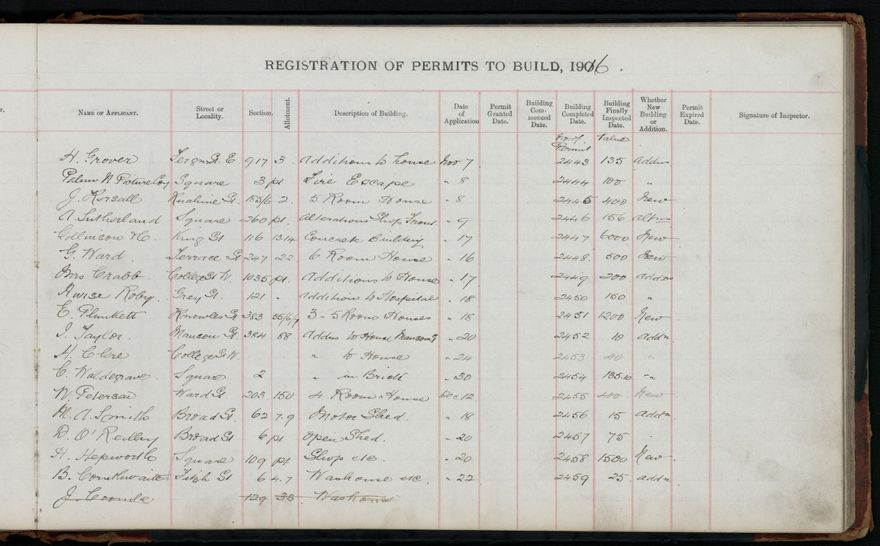 REGISTRATION OF PERMITS TO BUILD, 1916.
NAME OF APPLICANT. Street or Locality. Section. Allotment. Description of Building. Date of Application Permit Granted Date. Building Commenced Date. Building Completed Date. Building Finally Inspected Date. Whether New Building or Addition. Permit Expired Date. Signature of Inspector.
No of Permit Value
H. Grover St. E 917 3 Additions to house Nov 7 2443 135 addn
Palm N Picture Coy Square 3 pt Fire Escape " 8 2444 100 "
J. Kersall St. 2 5 Room House " 8 2445 400 New
A. Sutherland Square 260 pt. Alterations Shop Front " 9 2446 156 altn
Collinson & Co. King St 116 13.14 Concrete Building " 17 2447 6000 New
G. Ward Terrace St 247 22 6 Room House " 16 2448 500 New
Mrs Crabb College St W. 1035 pt. Additions to House " 17 2449 200 addn
Nurse Roby Grey St. 121 " addition to Hospital " 18 2450 150 "
E. Plunkett Knowles St 383 3 - 5 Room Houses " 18 2451 1200 New
J. Taylor Manson St 384 88 Addns to House Manson St " 20 2452 10 addn
H. Clere College St W. " to House " 24 2453 40 "
C. Waldegrave Square 2 " in Brick " 30 2454 135.10 "
W. Petersen Ward St 203 150 4 Room House Dec 12 2455 400 New
M. A. Smith Broad St 62 7.9 Motor Shed " 18 2456 15 addn
D. O'Reilley Broad St 6 pt Open Shed. " 20 2457 75 "
H. Hepworth Square 109 pt Shop etc. " 20 2458 1500 New
B. Cornthwaite Fitzh St 6 4.7 Washouse etc. " 22 2459 25 addn
J. Coombe 129 35 Washouse